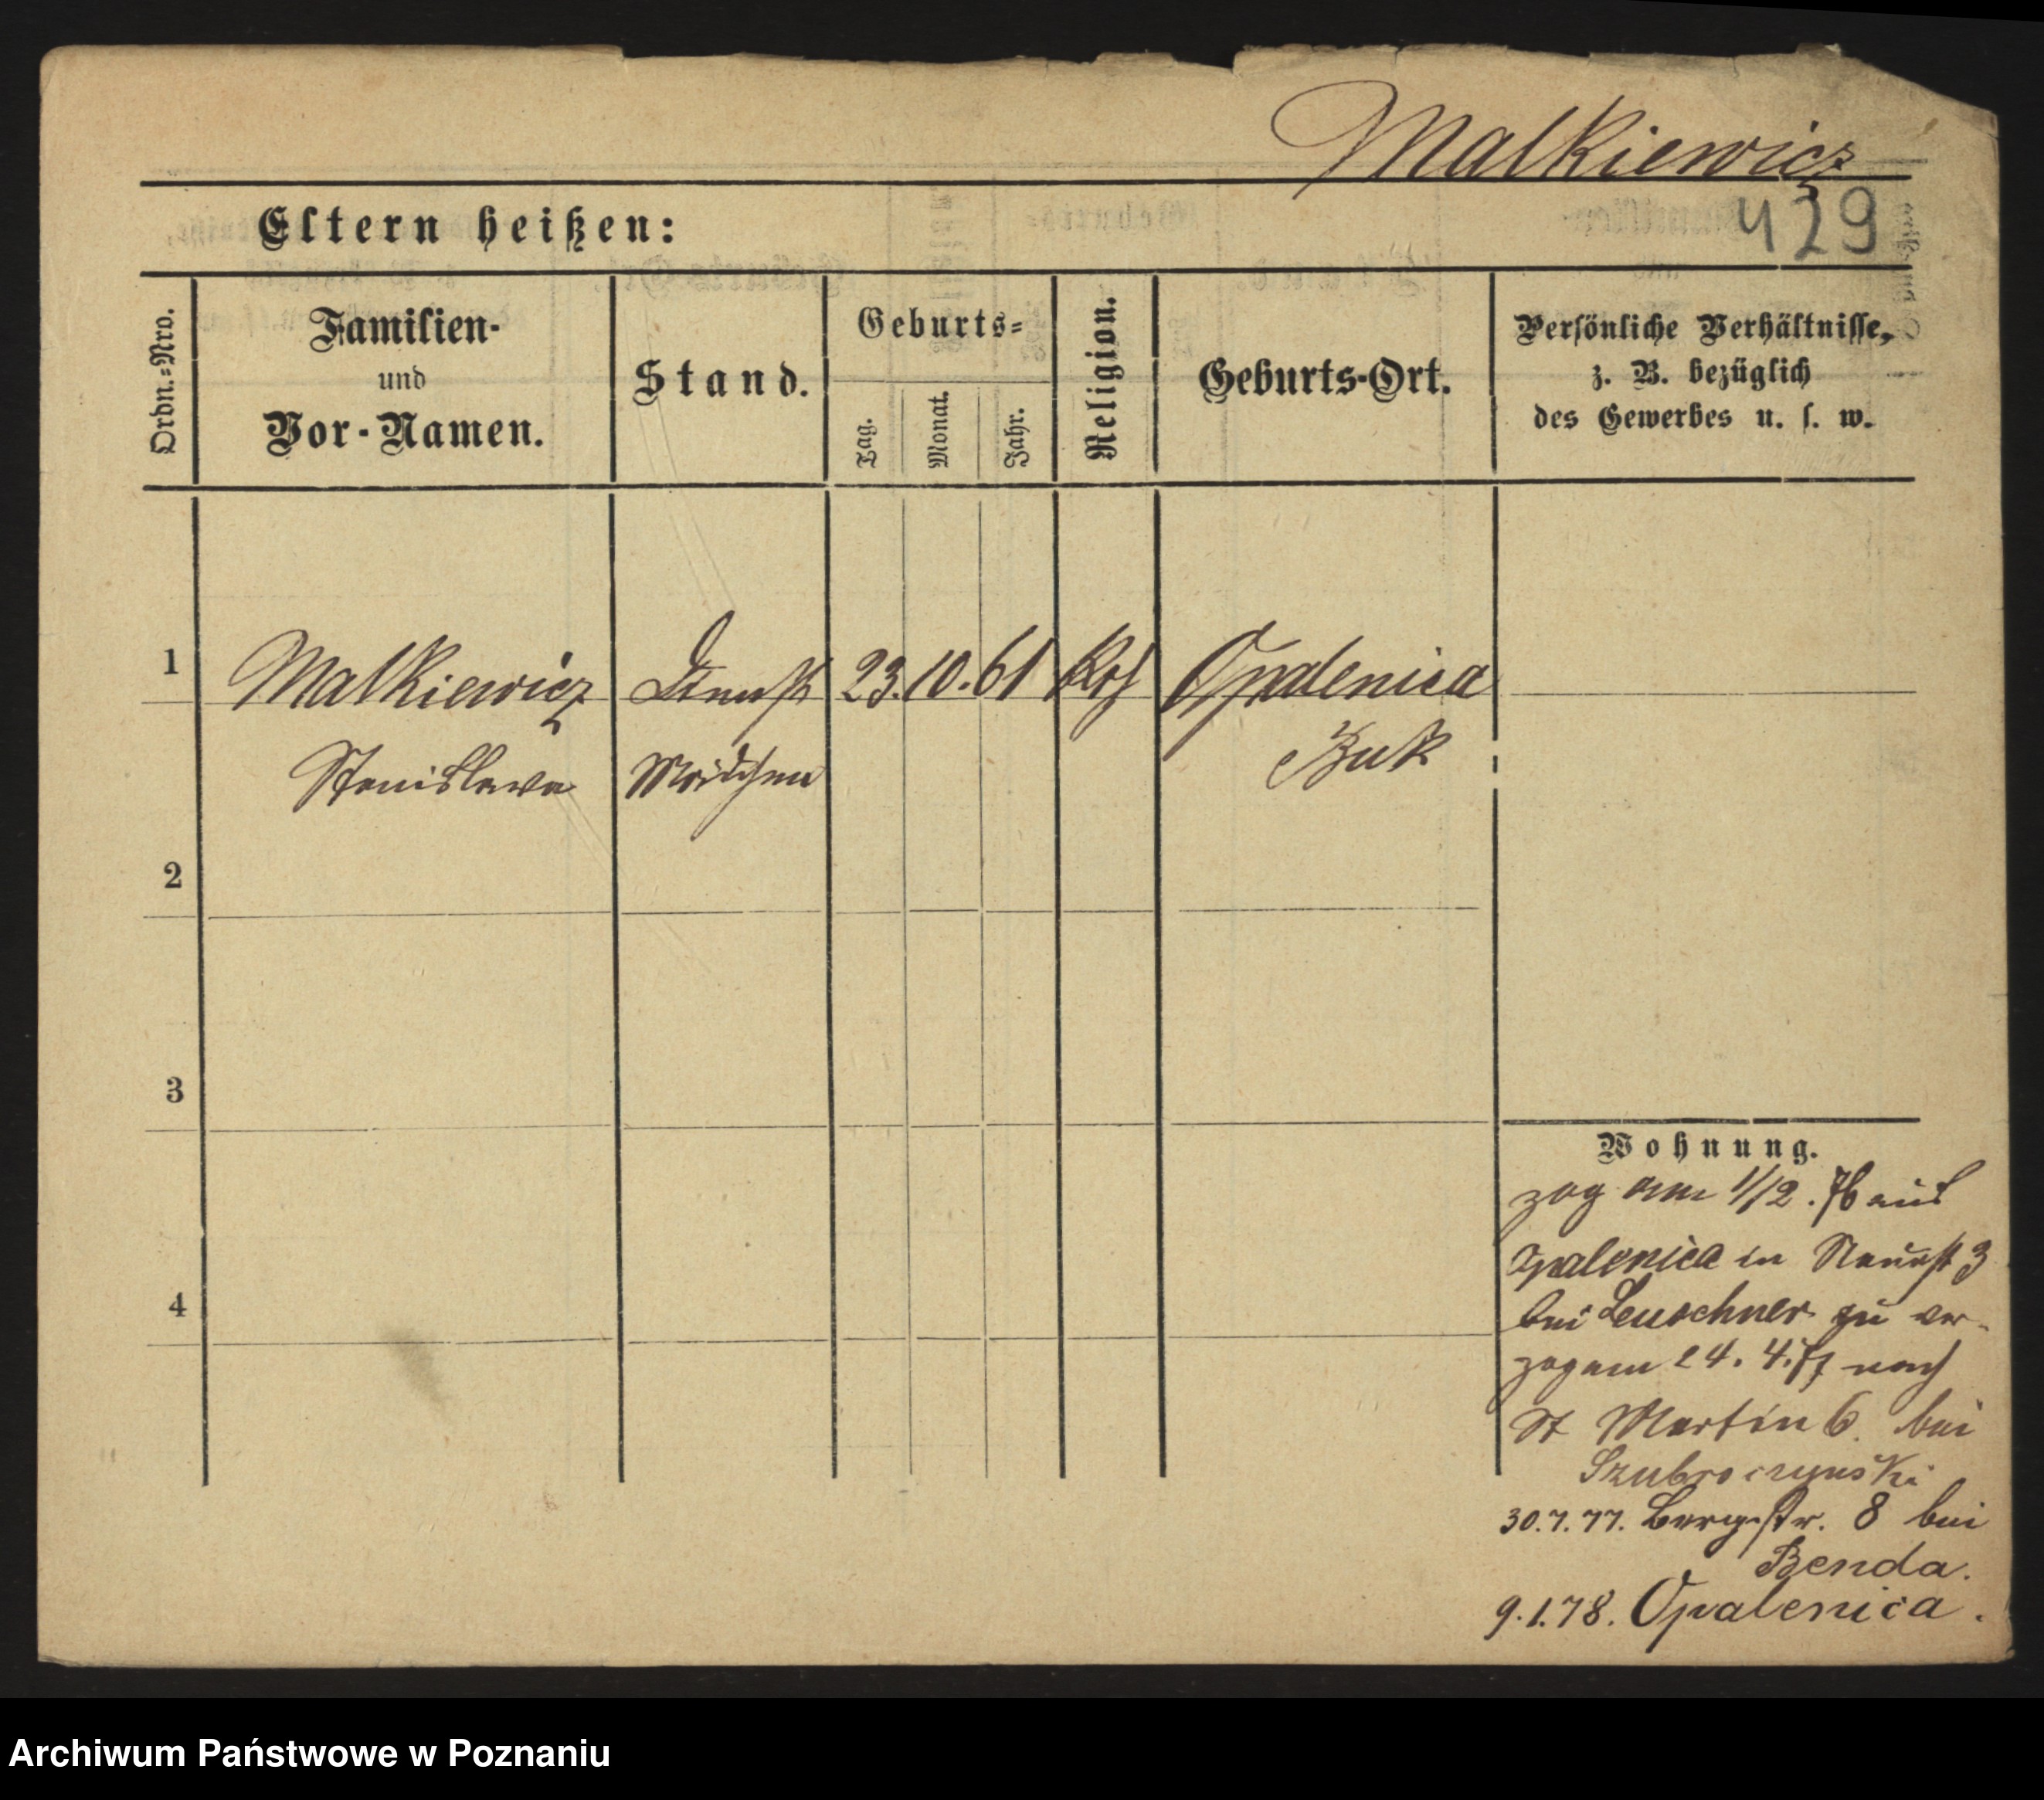 Malkiewicz
429
Eltern heißen:
Ordn.=Nro.
Familien-
und
Vor-Namen.
Stand.
Geburts=
Tag.
Monat.
Jahr.
Religion.
Geburts-Ort.
Persönliche Verhältnisse,
z. B. bezüglich
des Gewerbes u. s. w.
1
Malkiewicz Dienst 23. 10. 61 Kth Opalenica
Stanislawa Mädchen Buk
2
3
4
Wohnung.
zog am 1/12. 76 aus
Opalenica in Neuest 3
bei Leuschner zu ver-
zog am 24. 4. 77 nach
St Martin 6. bei
30.7.77. Bergstr. 8 bei
Benda.
9.1.78. Opalenica.
Archiwum Państwowe w Poznaniu